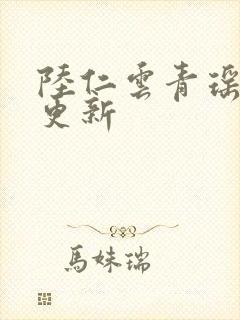 陸仁雲青瑶
更新
馬妹瑞